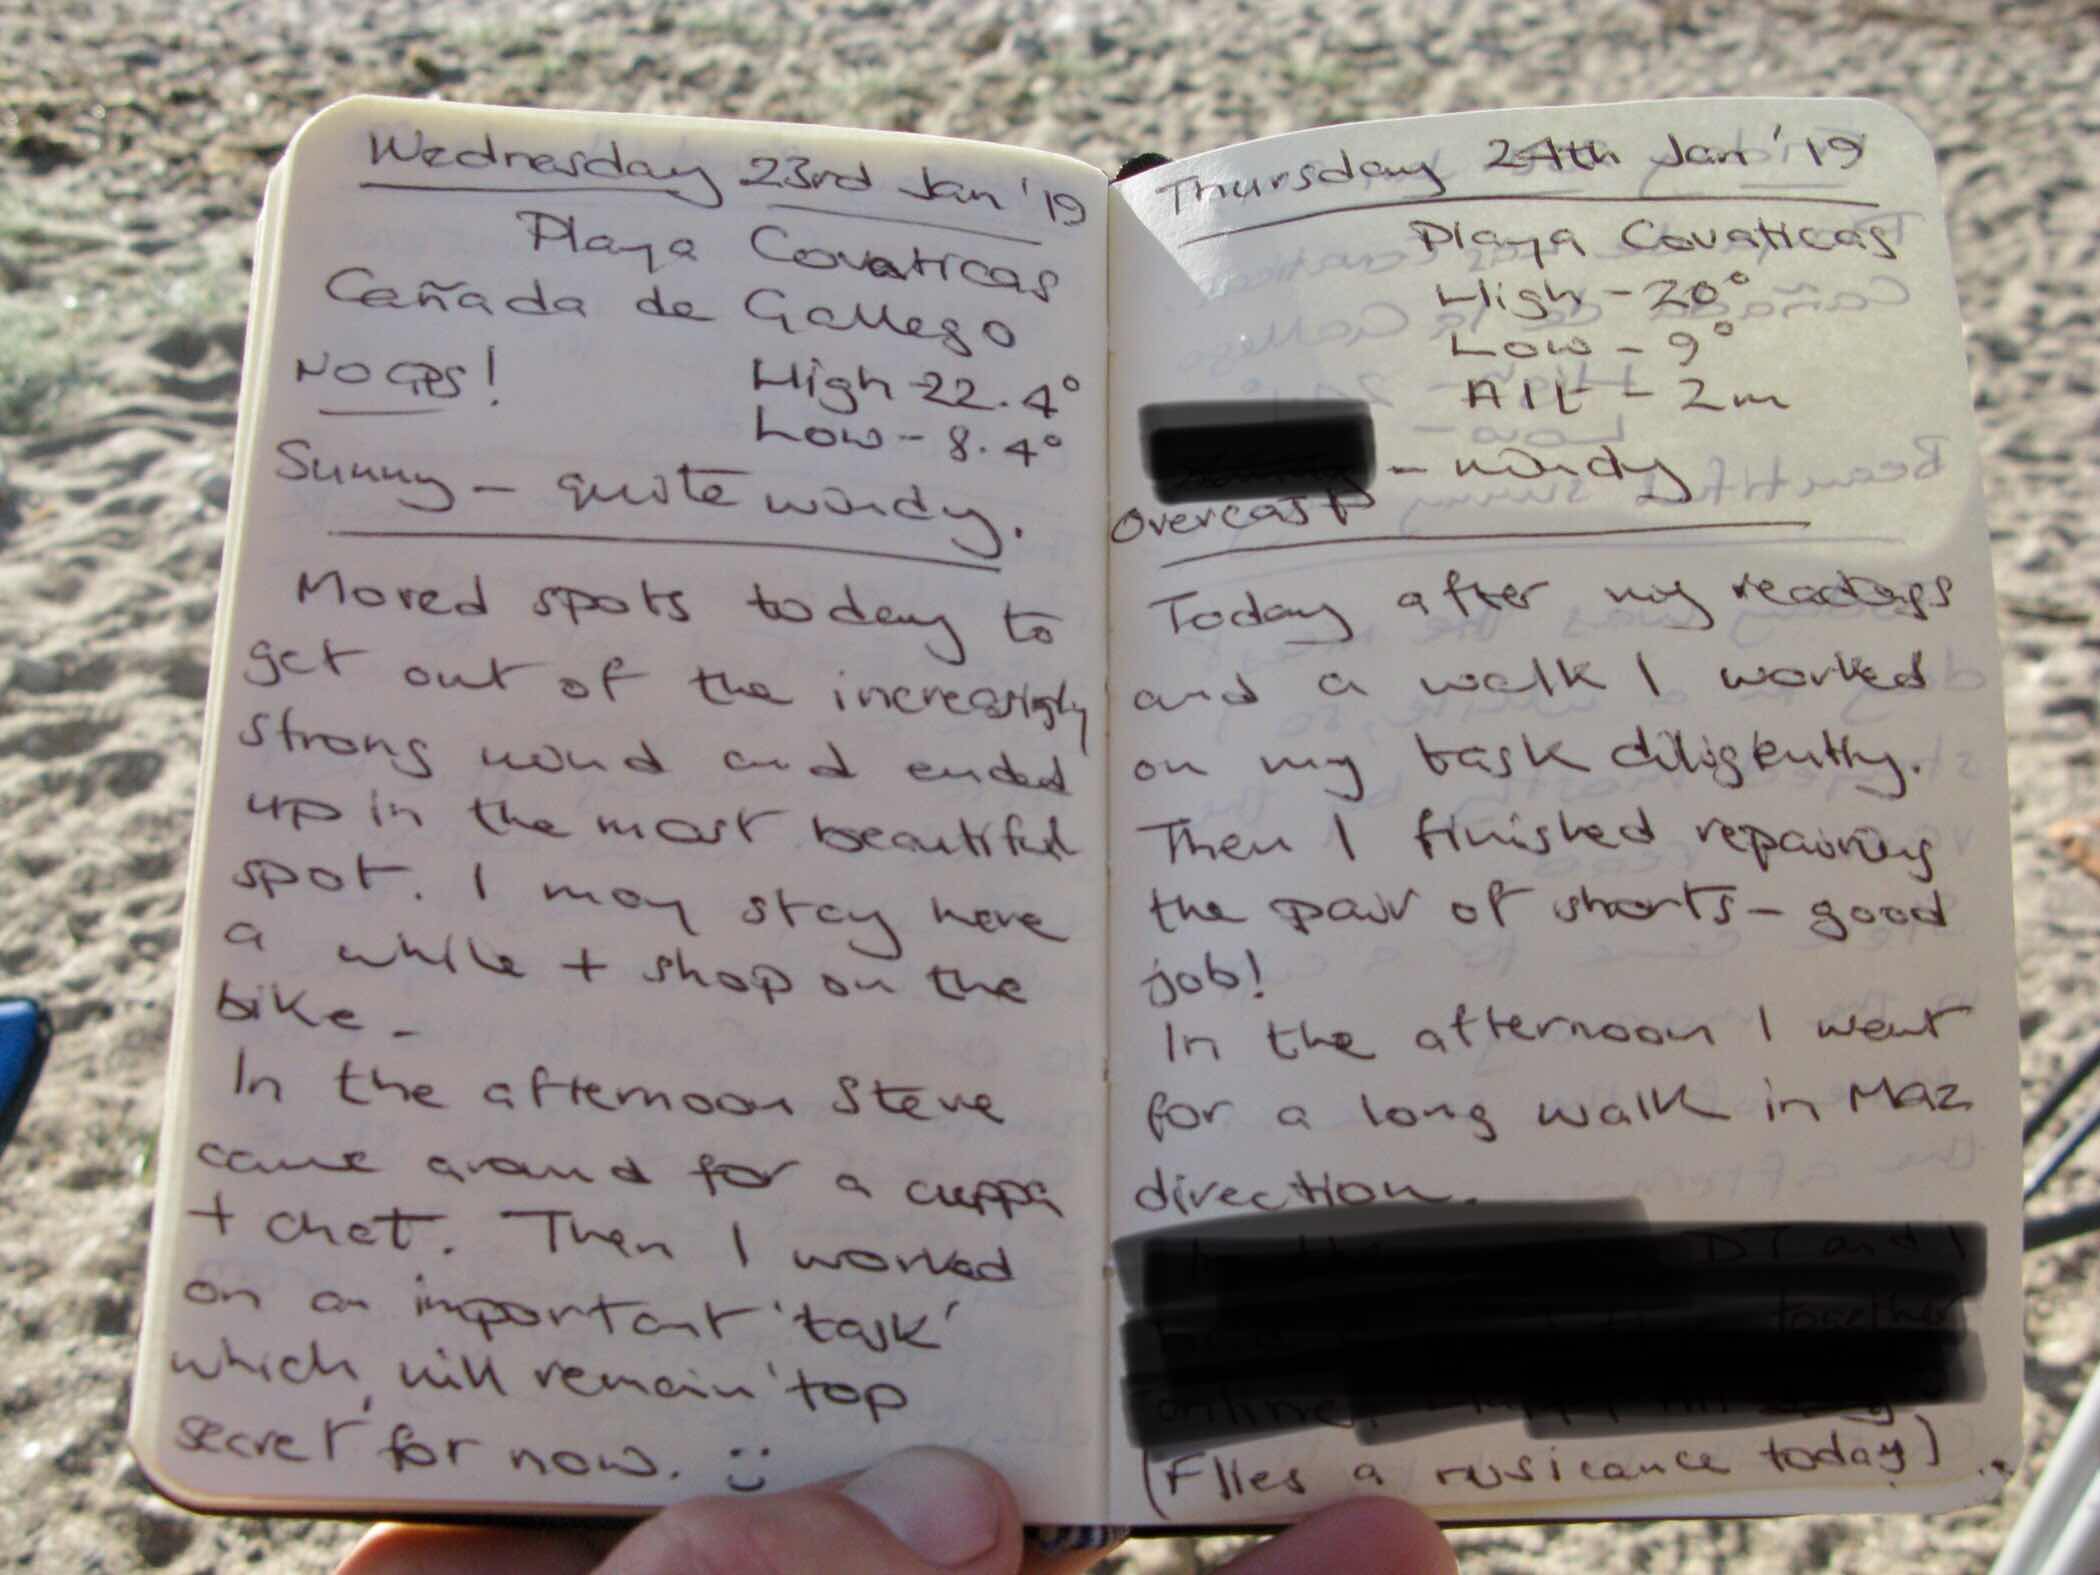 Wednesday 23rd Jan '19
Playa Covaticas
Cañada de Gallego
NO GPS!
High - 22.4°
Low - 8.4°
Sunny - quite windy.
Moved spots today to
get out of the increasigly
strong wind and ended
up in the most beautiful
spot. I may stay here
a while + shop on the
bike -
In the afternoon Steve
came around for a cuppa
+ chat. Then I worked
on an important 'task'
which will remain 'top
secret' for now. :)
Thursday 24th Jan '19
Playa Covaticas
High - 20°
Low - 9°
Alt - 2m
- windy
overcast
Today after my readings
and a walk I worked
on my task diligently.
Then I finished repairing
the pair of shorts - good
job!
In the afternoon I went
for a long walk in Maz
direction.
DT and I
together
(Flies a nusicance today)